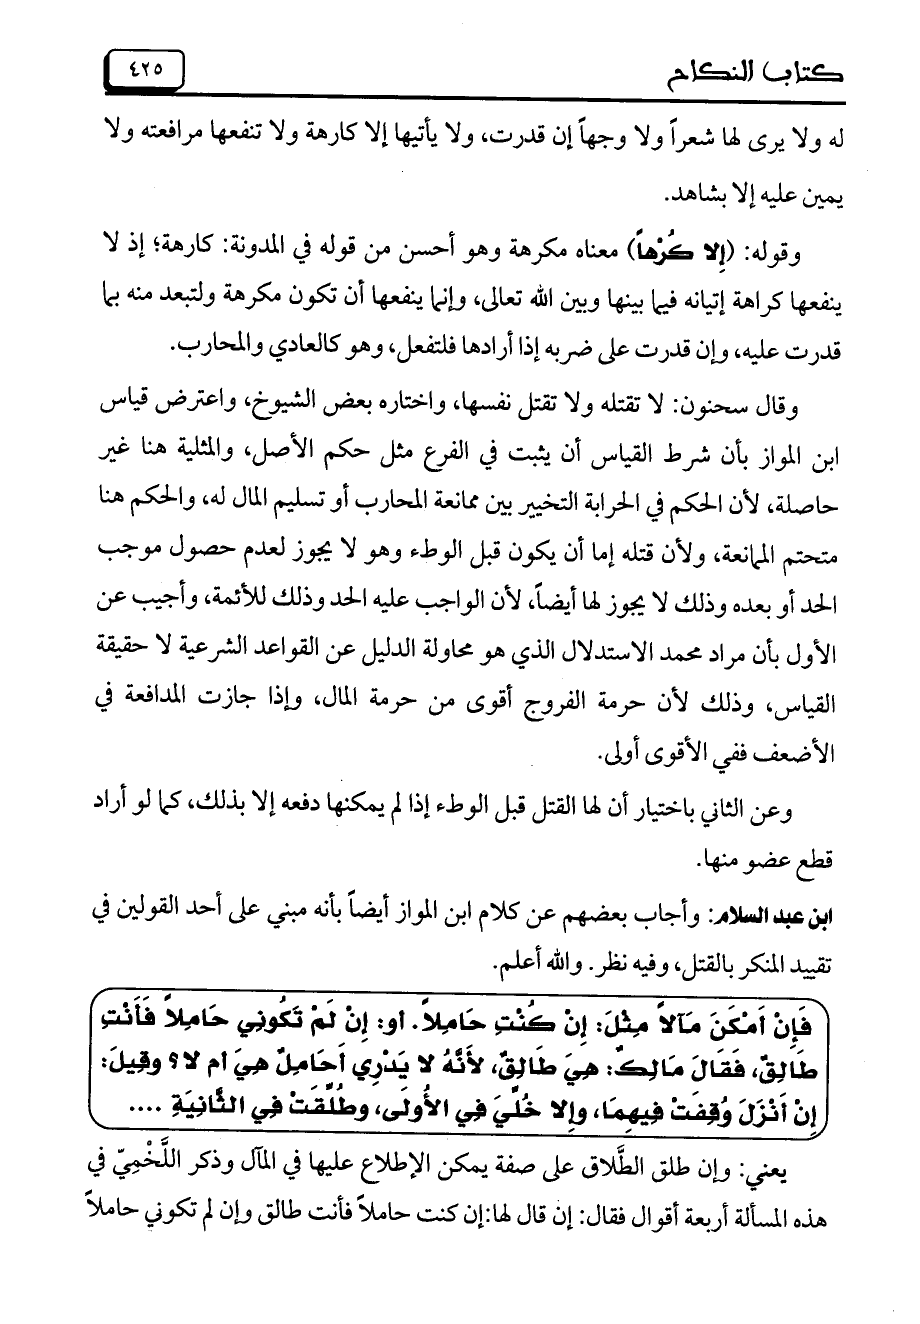 كتاب النكاح
٤٢٥
له ولا يرى لها شعراً ولا وجهاً إن قدرت، ولا يأتيها إلا كارهة ولا تنفعها مرافعته ولا
يمين عليه إلا بشاهد.
وقوله: (إِلا كُرْهاً) معناه مكرهة وهو أحسن من قوله في المدونة: كارهة؛ إذ لا
ينفعها كراهة إتيانه فيما بينها وبين الله تعالى، وإنما ينفعها أن تكون مكرهة ولتبعد منه بما
قدرت عليه، وإن قدرت على ضربه إذا أرادها فلتفعل، وهو كالعادي والمحارب.
وقال سحنون: لا تقتله ولا تقتل نفسها، واختاره بعض الشيوخ، واعترض قياس
ابن المواز بأن شرط القياس أن يثبت في الفرع مثل حكم الأصل، والمثلية هنا غير
حاصلة، لأن الحكم في الحرابة التخيير بين ممانعة المحارب أو تسليم المال له، والحكم هنا
متحتم الممانعة، ولأن قتله إما أن يكون قبل الوطء وهو لا يجوز لعدم حصول موجب
الحد أو بعده وذلك لا يجوز لها أيضاً، لأن الواجب عليه الحد وذلك للأئمة، وأجيب عن
الأول بأن مراد محمد الاستدلال الذي هو محاولة الدليل عن القواعد الشرعية لا حقيقة
القياس، وذلك لأن حرمة الفروج أقوى من حرمة المال، وإذا جازت المدافعة في
الأضعف ففي الأقوى أولى.
وعن الثاني باختيار أن لها القتل قبل الوطء إذا لم يمكنها دفعه إلا بذلك، كما لو أراد
قطع عضو منها.
ابن عبد السلام: وأجاب بعضهم عن كلام ابن المواز أيضاً بأنه مبني على أحد القولين في
تقييد المنكر بالقتل، وفيه نظر. والله أعلم.
فَإِنْ أَمْكَنَ مَآلاً مِثْلَ: إِنْ كُنْتِ حَامِلاً. أو: إِنْ لَمْ تَكُونِي حَامِلاً فَأَنْتِ
طَالِقٌ، فَقَالَ مَالِكٌ: هِيَ طَالِقٌ، لأَنَّهُ لا يَدْرِي أَحَامِلٌ هِيَ أم لا؟ وقِيلَ:
إِنْ أَنْزَلَ وُقِفَتْ فِيهِمَا، وإِلا خُلِّيَ فِي الأُولَى، وطُلِّقَتْ فِي الثَّانِيَةِ ....
يعني: وإن طلق الطَّلاق على صفة يمكن الإطلاع عليها في المآل وذكر اللَّخْمِيّ في
هذه المسألة أربعة أقوال فقال: إن قال لها:إن كنت حاملاً فأنت طالق وإن لم تكوني حاملاً